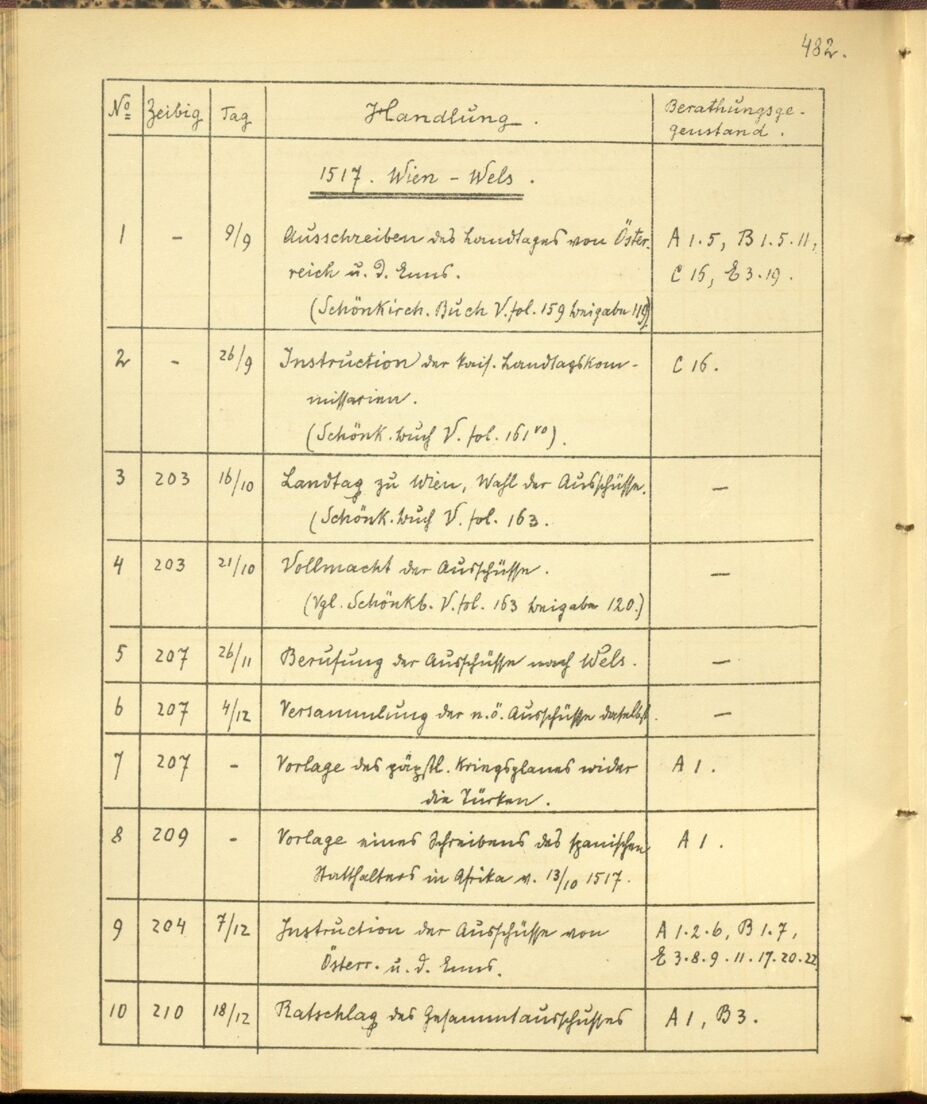 482.
№ Zeibig Tag Handlung. Berathungsge-
genstand.
1517. Wien - Wels.
1 - 9/9 Ausschreiben des Landtages von Öster- A 1.5, B 1.5.11,
reich u. d. Enns. C 15, E 3.19.
(Schönkirch. Buch V. fol. 159 Beigabe 119)
2 - 26/9 Instruction der kais. Landtagskom- C 16.
missarien.
(Schönk. Buch V. fol. 161 vo).
3 203 16/10 Landtag zu Wien, Wahl der Ausschüsse. -
(Schönk. Buch V. fol. 163.
4 203 21/10 Vollmacht der Ausschüsse. -
(Vgl. Schönkb. V. fol. 163 Beigabe 120.)
5 207 26/11 Berufung der Ausschüsse nach Wels. -
6 207 4/12 Versammlung der n.ö. Ausschüsse daselbst. -
7 207 - Vorlage des päpstl. Kriegsplanes wider A 1.
die Türken.
8 209 - Vorlage eines Schreibens des spanischen A 1.
Statthalters in Afrika v. 13/10 1517.
9 204 7/12 Instruction der Ausschüsse von A 1.2.6, B 1.7,
Österr. u. d. Enns. E 3.8.9.11.17.20.22
10 210 18/12 Ratschlag des Gesammtausschusses A 1, B 3.